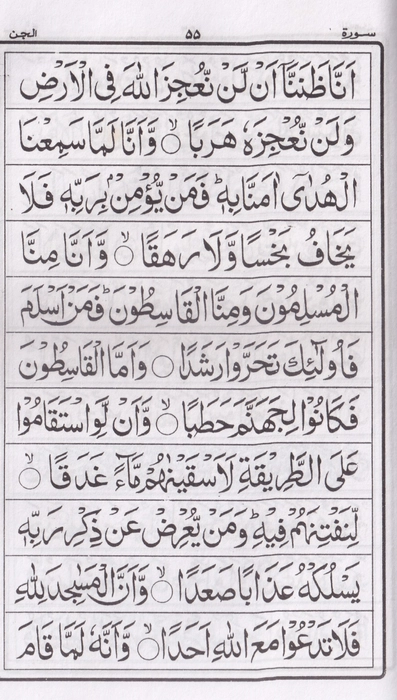 سورة ٥٥ الجن
اَنَّا ظَنَنَّاۤ اَنْ لَّنْ نُّعْجِزَ اللّٰهَ فِی الْاَرْضِ
وَلَنْ نُّعْجِزَهٗ هَرَبًا ۙ وَّاَنَّا لَمَّا سَمِعْنَا
الْهُدٰۤی اٰمَنَّا بِهٖ ؕ فَمَنْ یُّؤْمِنْۢ بِرَبِّهٖ فَلَا
یَخَافُ بَخْسًا وَّلَا رَهَقًا ۙ وَّاَنَّا مِنَّا
الْمُسْلِمُوْنَ وَمِنَّا الْقَاسِطُوْنَ ؕ فَمَنْ اَسْلَمَ
فَاُولٰٓئِكَ تَحَرَّوْا رَشَدًا ۝ وَاَمَّا الْقَاسِطُوْنَ
فَكَانُوْا لِجَهَنَّمَ حَطَبًا ۙ وَّاَنْ لَّوِ اسْتَقَامُوْا
عَلَی الطَّرِیْقَةِ لَاَسْقَیْنٰهُمْ مَّآءً غَدَقًا ۙ
لِّنَفْتِنَهُمْ فِیْهِ ؕ وَمَنْ یُّعْرِضْ عَنْ ذِكْرِ رَبِّهٖ
یَسْلُكْهُ عَذَابًا صَعَدًا ۙ وَّاَنَّ الْمَسٰجِدَ لِلّٰهِ
فَلَا تَدْعُوْا مَعَ اللّٰهِ اَحَدًا ۙ وَّاَنَّهٗ لَمَّا قَامَ